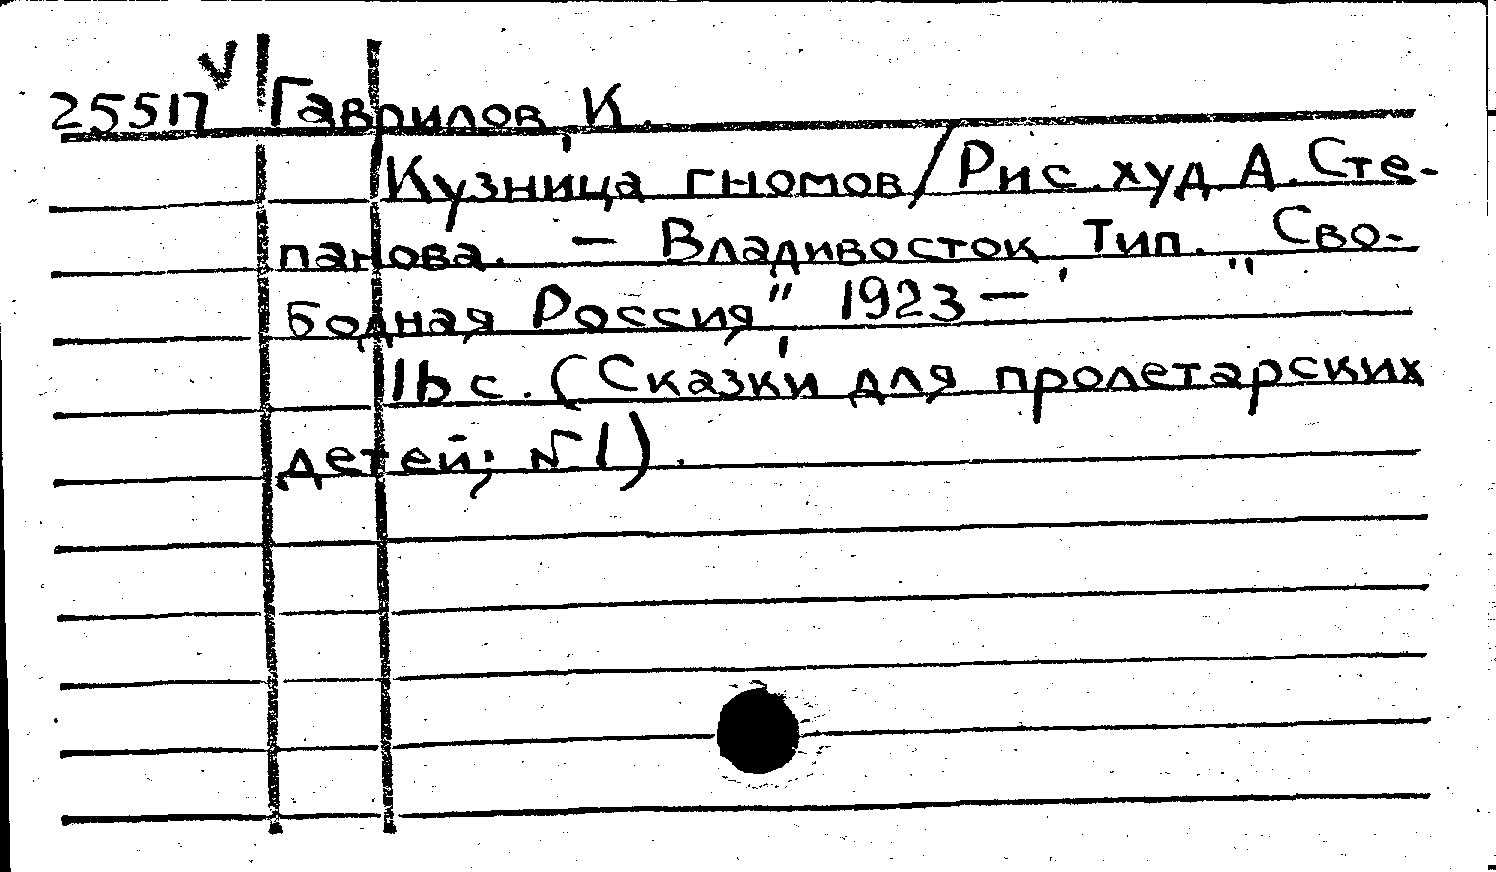 25517 V Гаврилов К.
Кузница гномов/Рис.худ А.Сте-
панова. — Владивосток Тип. „Сво-
бодная Россия" 1923 —
16 с. (Сказки для пролетарских
детей; №1).